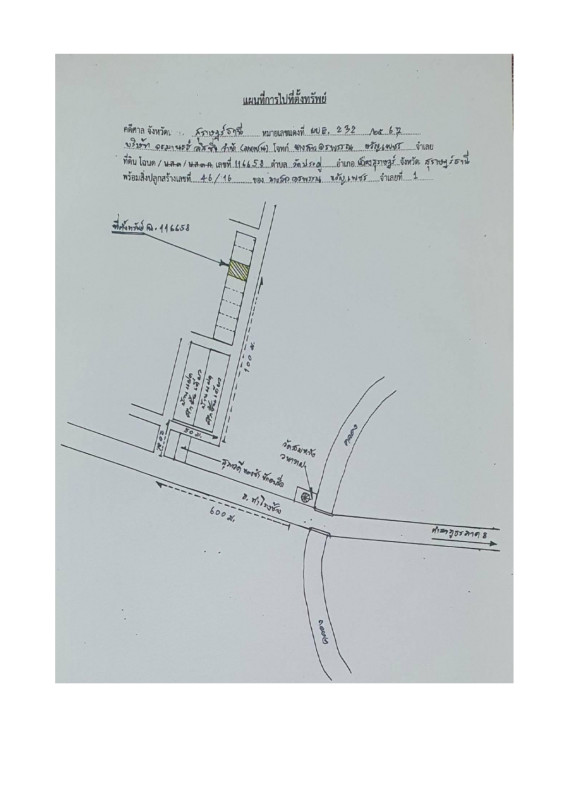 แผนที่การไปที่ตั้งทรัพย์
คดีศาล จังหวัด สุราษฎร์ธานี หมายเลขแดงที่ ผบE. 232 /2567
บริษัท (มหาชน) โจทก์ นางสาวอรพรรณ ขวัญเพชร จำเลย
ที่ดิน โฉนด / น.ส.3 / น.ส.3 ก. เลขที่ 116658 ตำบล วัดประดู่ อำเภอ เมืองสุราษฎร์ จังหวัด สุราษฎร์ธานี
พร้อมสิ่งปลูกสร้างเลขที่ 46/16 ของ นางสาวอรพรรณ ขวัญเพชร จำเลยที่ 1
ที่ตั้งทรัพย์ ฉ. 116658
100 ม.
บ้านแฝด
ตึกชั้นเดียว
บ้านแฝด
ตึกชั้นเดียว
30 ม.
ซอย
วัดสมหวัง
วนาราม
คลอง
600 ม.
คลอง